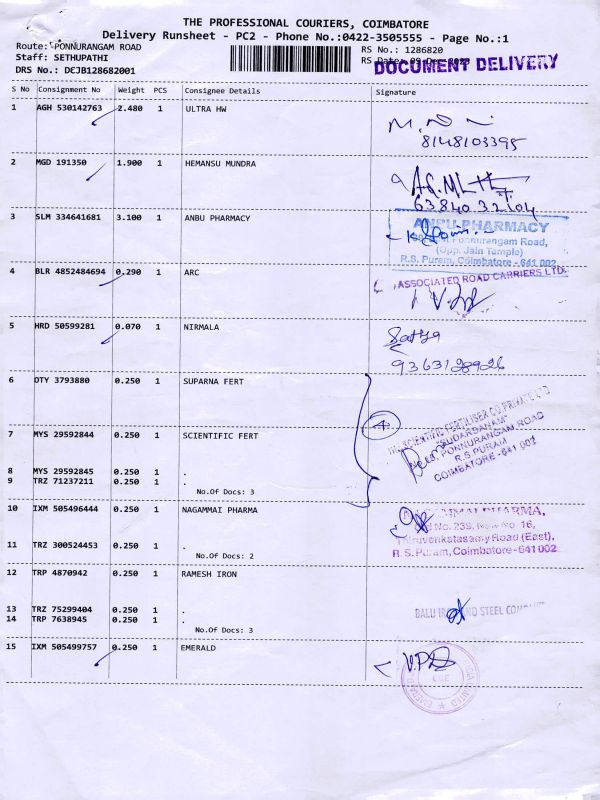 THE PROFESSIONAL COURIERS, COIMBATORE
Delivery Runsheet - PC2 - Phone No.:0422-3505555 - Page No.:1
Route: PONNURANGAM ROAD
RS No.: 1286820
Staff: SETHUPATHI
RS Date: 09-Dec-2023
DOCUMENT DELIVERY
DRS No.: DCJB128682001
S No Consignment No Weight PCS Consignee Details Signature
1 AGH 530142763 2.480 1 ULTRA HW
8148103395
2 MGD 191350 1.900 1 HEMANSU MUNDRA
63840 32104
3 SLM 334641681 3.100 1 ANBU PHARMACY
ANBU PHARMACY
Ponnurangam Road,
(Opp. Jain Temple)
R.S. Puram, Coimbatore - 641 002
4 BLR 4852484694 0.290 1 ARC
ASSOCIATED ROAD CARRIERS LTD.
5 HRD 50599281 0.070 1 NIRMALA
Sathya
9363128926
6 DTY 3793880 0.250 1 SUPARNA FERT
4
7 MYS 29592844 0.250 1 SCIENTIFIC FERT
THE SCIENTIFIC FERTILISER CO PRIVATE LTD
"SUDARSANAM"
PONNURANGAM ROAD
R.S PURAM
COIMBATORE-641 002
8 MYS 29592845 0.250 1 .
9 TRZ 71237211 0.250 1 .
No.Of Docs: 3
10 IXM 505496444 0.250 1 NAGAMMAI PHARMA
NAGAMMAI PHARMA,
Old No. 239, New No. 16,
Thiruvenkatasamy Road (East),
R.S. Puram, Coimbatore-641 002
11 TRZ 300524453 0.250 1 .
No.Of Docs: 2
12 TRP 4870942 0.250 1 RAMESH IRON
13 TRZ 75299404 0.250 1 .
BALU IRON AND STEEL COMPANY
14 TRP 7638945 0.250 1 .
No.Of Docs: 3
15 IXM 505499757 0.250 1 EMERALD
CBE